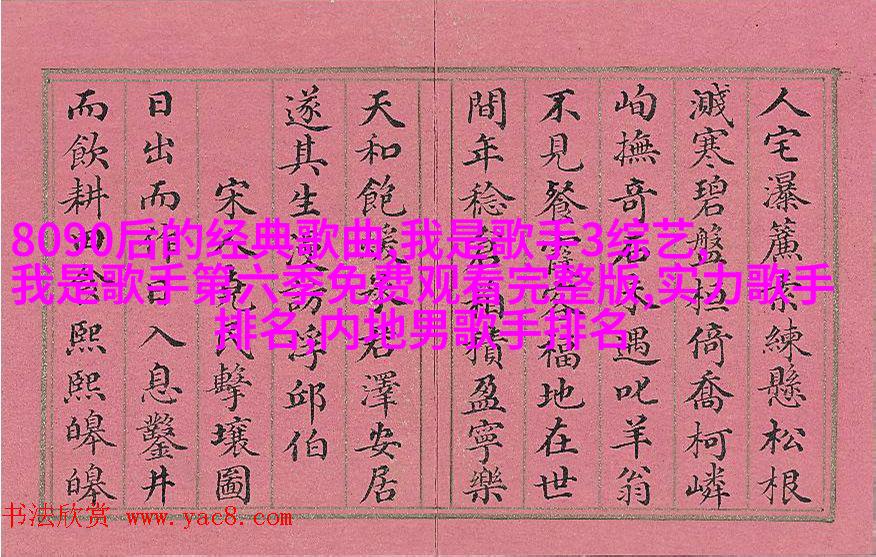 人宅瀑簾索練懸松根
濺寒碧盤桓倚喬柯嶙
峋撫奇石不遇叱羊翁
不見餐霞客福地在世
間年稔箱積盈寧樂
天和飽暖君澤安居
遂其生漫訪浮邱伯
宋人堯民擊壤圖
日出而作日入息鑿井
而飲耕田食熙熙皞皞
8090后的经典歌曲,我是歌手3综艺,
我是歌手第六季免费观看完整版,实力歌手
排名,内地男歌手排名
书法欣赏 www.yac8.com